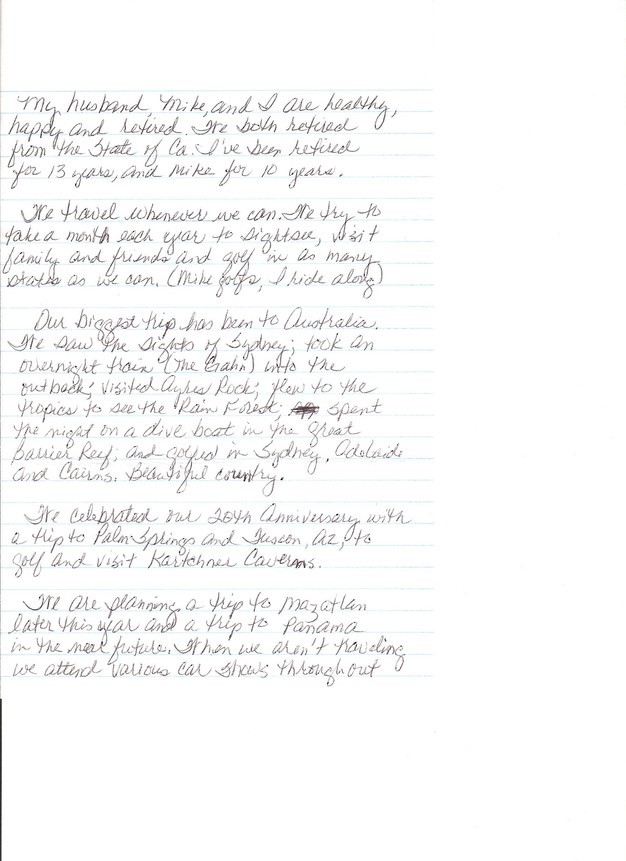 My husband, Mike, and I are healthy,
happy and retired. We both retired
from the State of Ca. I've been retired
for 13 years, and Mike for 10 years.
We travel whenever we can. We try to
take a month each year to sightsee, visit
family and friends and golf in as many
states as we can. (Mike golfs, I ride along)
Our biggest trip has been to Australia.
We saw the sights of Sydney; took an
overnight train (The Gahn) into the
outback; visited Ayres Rock; flew to the
tropics to see the Rain Forest; spent
the night on a dive boat in the Great
Barrier Reef; and golfed in Sydney, Adelaide
and Cairns. Beautiful country.
We celebrated our 20th Anniversary with
a trip to Palm Springs and Tuscon, AZ, to
golf and visit Kartchner Caverns.
We are planning a trip to Mazatlan
later this year and a trip to Panama
in the near future. When we aren't traveling
we attend various car shows throughout